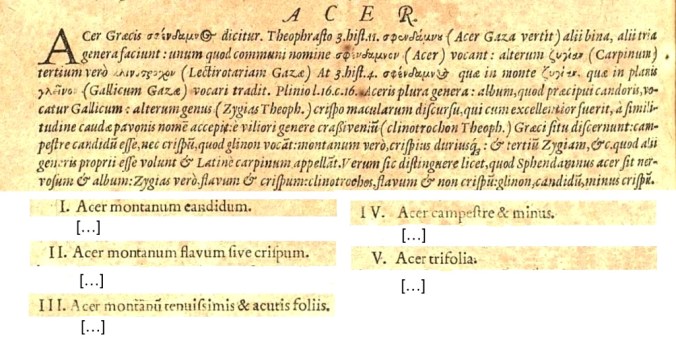 ACER.
ACer Græcis σφένδαμνος dicitur. Theophrasto 3.hist.11. σφενδάμνου (Acer Gaza vertit) alii bina, alii tria
genera faciunt: unum quod communi nomine σφένδαμνον (Acer) vocant: alterum ζυγίαν (Carpinum)
tertium verò κλινότροχον (Lectirotariam Gazæ) At 3.hist.4. σφένδαμνος quæ in monte ζυγίαν, quæ in planis
γλεῖνος (Gallicum Gazæ) vocari tradit. Plinio l.16.c.16. Aceris plura genera: album, quod præcipui candoris, vo-
catur Gallicum: alterum genus (Zygias Theoph.) crispo macularum discursu, qui cum excellentior fuerit, à simili-
tudine caudæ pavonis nomē accepit: è viliori genere crassiveniū (clinotrochon Theoph.) Græci situ discernunt: cam-
pestre candidū esse, nec crispū, quod glinon vocāt: montanum verò, crispius duriusq́;: & tertiū Zygiam, &c. quod alii
generis proprii esse volunt & Latinè carpinum appellāt. Verum sic distinguere licet, quod Sphendamnus acer sit ner-
vosum & album: Zygias verò. flavum & crispum: clinotrochos, flavum & non crispū: glinon, candidū, minus crispū.
I. Acer montanum candidum.
[...]
II. Acer montanum flavum sive crispum.
[...]
III. Acer montānū tenuissimis & acutis foliis.
[...]
IV. Acer campestre & minus.
[...]
V. Acer trifolia.
[...]